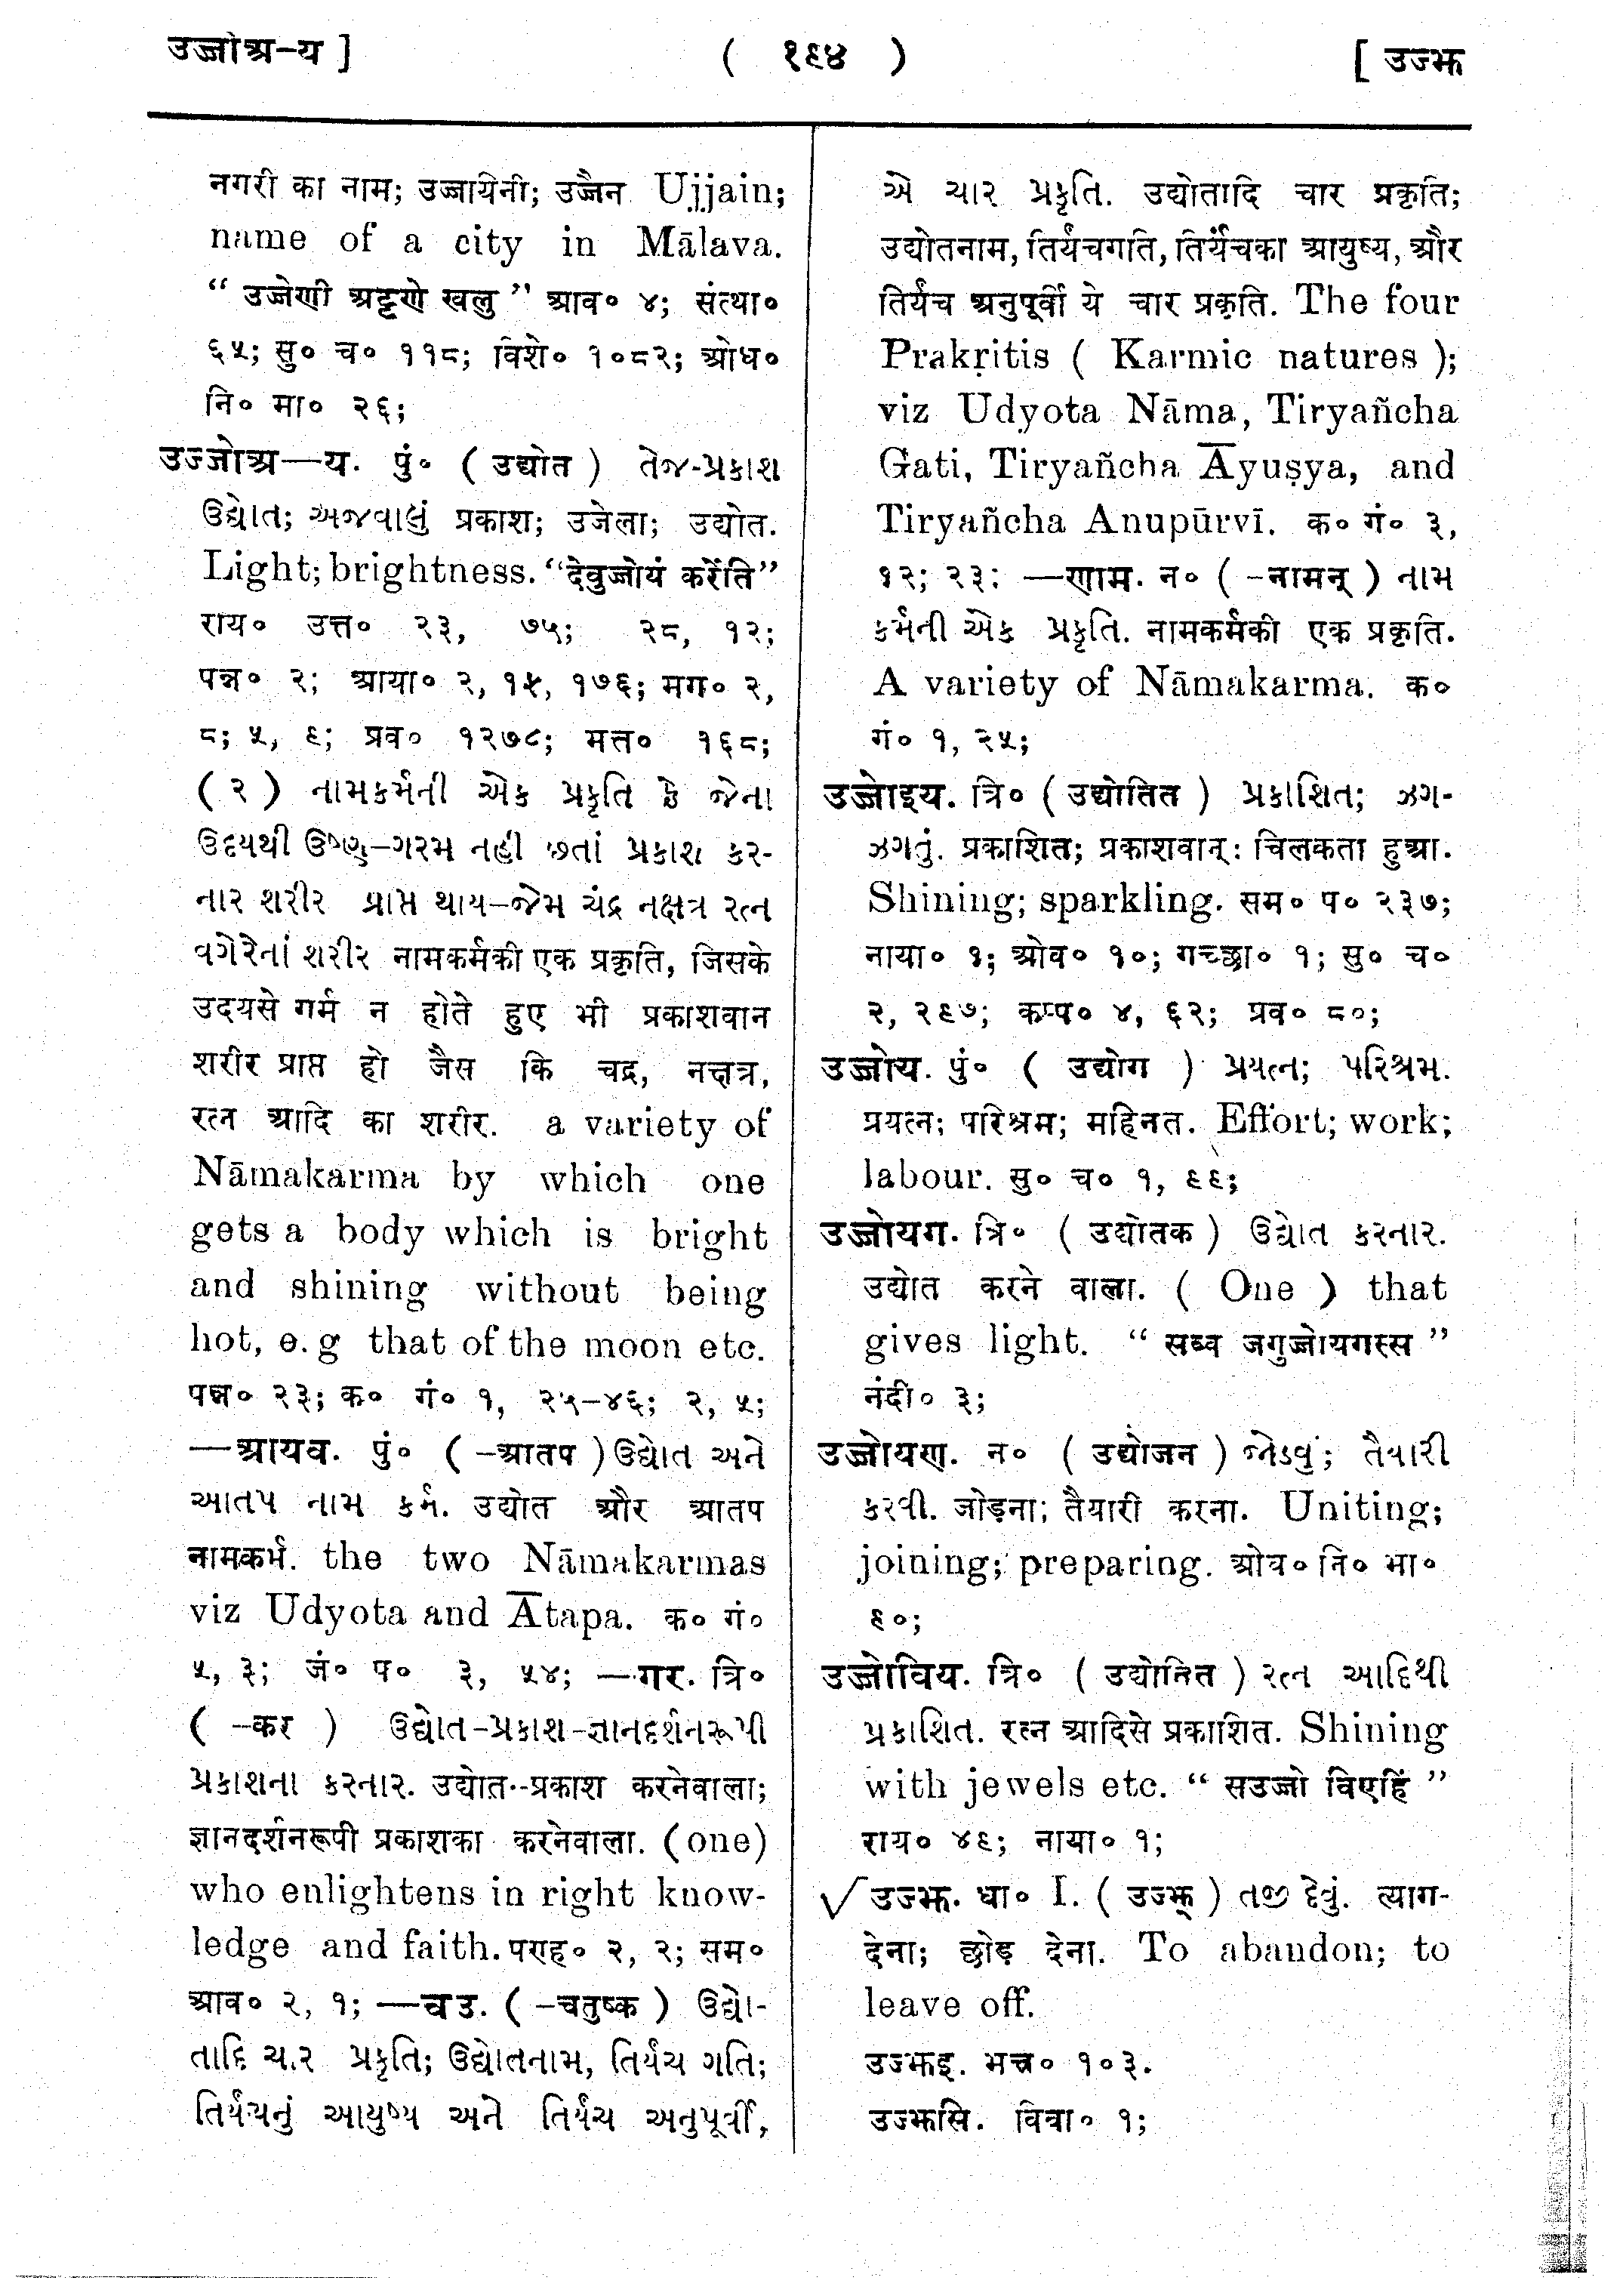 उज्जोअ-य ]
( १९४ )
[ उज्झ
नगरी का नाम; उज्जयिनी; उज्जैन Ujjain;
name of a city in Mālava.
“ उज्जेणी अट्टणे खलु ” आव० ४; संत्था०
६५; सु० च० ११८; विशे० १०८२; ओघ०
नि० भा० २६;
उज्जोअ—य. पुं० ( उद्योत ) તેજ-પ્રકાશ
ઉદ્યોત; અજવાલું प्रकाश; उजेला; उद्योत.
Light; brightness. “देवुज्जोयं करेंति”
राय० उत्त० २३, ७५; २८, १२;
पन्न० २; आया० २, १५, १७६; भग० २,
८; ५, ९; प्रव० १२७८; भत्त० १६८;
( २ ) નામકર્મની એક પ્રકૃતિ કે જેના
ઉદયથી ઉષ્ણ-ગરમ નહી છતાં પ્રકાશ કર-
નાર શરીર પ્રાપ્ત થાય-જેમ ચંદ્ર નક્ષત્ર રત્ન
વગેરેનાં શરીર नामकर्मकी एक प्रकृति, जिसके
उदयसे गर्म न होते हुए भी प्रकाशवान
शरीर प्राप्त हो जैस कि चद्र, नक्षत्र,
रत्न आदि का शरीर. a variety of
Nāmakarma by which one
gets a body which is bright
and shining without being
hot, e. g that of the moon etc.
पन्न० २३; क० गं० १, २५-४६; २, ५;
—आयव. पुं० ( -आतप ) ઉદ્યોત અને
આતપ નામ કર્મ. उद्योत और आतप
नामकर्म. the two Nāmakarmas
viz Udyota and Ātapa. क० गं०
५, ३; जं० प० ३, ५४; —गर. त्रि०
( -कर ) ઉદ્યોત-પ્રકાશ-જ્ઞાનદર્શનરૂપી
પ્રકાશના કરનાર. उद्योत-प्रकाश करनेवाला;
ज्ञानदर्शनरूपी प्रकाशका करनेवाला. (one)
who enlightens in right know-
ledge and faith. पण्ह० २, २; सम०
आव० २, १; —चउ. ( -चतुष्क ) ઉદ્યો-
તાદિ ચાર પ્રકૃતિ; ઉદ્યોતનામ, તિર્યંચ ગતિ;
તિર્યંચનું આયુષ્ય અને તિર્યંચ અનુપૂર્વી,
એ ચાર પ્રકૃતિ. उद्योतादि चार प्रकृति;
उद्योतनाम, तिर्यंचगति, तिर्यंचका आयुष्य, और
तिर्यंच अनुपूर्वी ये चार प्रकृति. The four
Prakṛitis ( Karmic natures );
viz Udyota Nāma, Tiryañcha
Gati, Tiryañcha Āyuṣya, and
Tiryañcha Anupūrvī. क० गं० ३,
१२; २३; —णाम. न० ( -नामन् ) નામ
કર્મની એક પ્રકૃતિ. नामकर्मकी एक प्रकृति.
A variety of Nāmakarma. क०
गं० १, २५;
उज्जोइय. त्रि० ( उद्योतित ) પ્રકાશિત; ઝગ-
ઝગતું. प्रकाशित; प्रकाशवान्; चिलकता हुआ.
Shining; sparkling. सम० प० २३७;
नाया० १; ओव० १०; गच्छा० १; सु० च०
२, २९७; कप्प० ४, ६२; प्रव० ८०;
उज्जोय. पुं० ( उद्योग ) પ્રયત્ન; પરિશ્રમ.
प्रयत्न; परिश्रम; महिनत. Effort; work;
labour. सु० च० १, ९९;
उज्जोयग. त्रि० ( उद्योतक ) ઉદ્યોત કરનાર.
उद्योत करने वाला. ( One ) that
gives light. “ सव्व जगुज्जोयगस्स ”
नंदी० ३;
उज्जोयण. न० ( उद्योजन ) જોડવું; તૈયારી
કરવી. जोड़ना; तैयारी करना. Uniting;
joining; preparing. ओघ० नि० भा०
९०;
उज्जोविय. त्रि० ( उद्योतित ) રત્ન આદિથી
પ્રકાશિત. रत्न आदिसे प्रकाशित. Shining
with jewels etc. “ सउज्जो विएहिं ”
राय० ४९; नाया० १;
√ उज्झ. धा० I. ( उज्झ् ) તજી દેવું. त्याग-
देना; छोड़ देना. To abandon; to
leave off.
उज्झइ. भत्त० १०३.
उज्झसि. विवा० १;